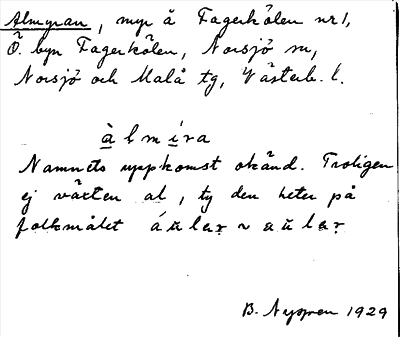 Almyran, myr å Fagerkölen nr 1,
Ö. byn Fagerkölen, Norsjö sn,
Norsjö och Malå tg, Västerb. l.
à l m í r a
Namnets uppkomst okänd. Troligen
ej växten al, ty den heter på
folkmålet áŭlar ~ aŭlar
B. Nygren 1929